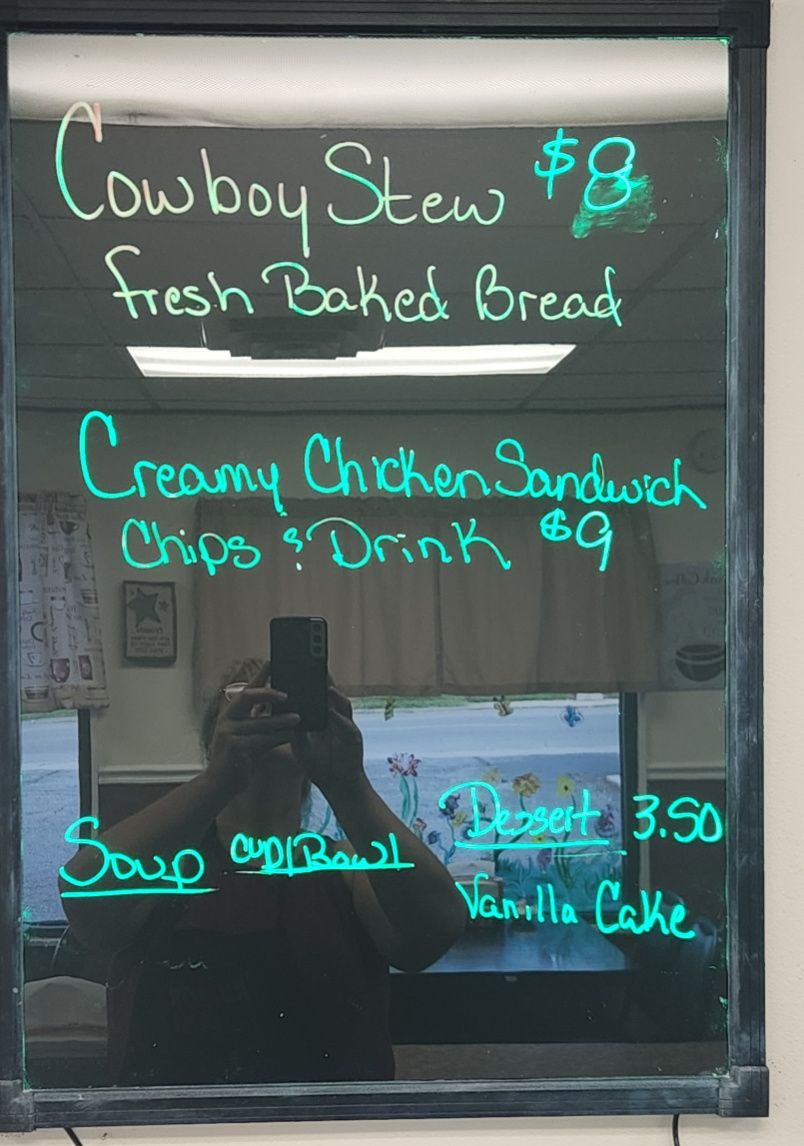 Cowboy Stew $8
Fresh Baked Bread
Creamy Chicken Sandwich
Chips & Drink $9
Soup Cup/Bowl
Dessert 3.50
Vanilla Cake